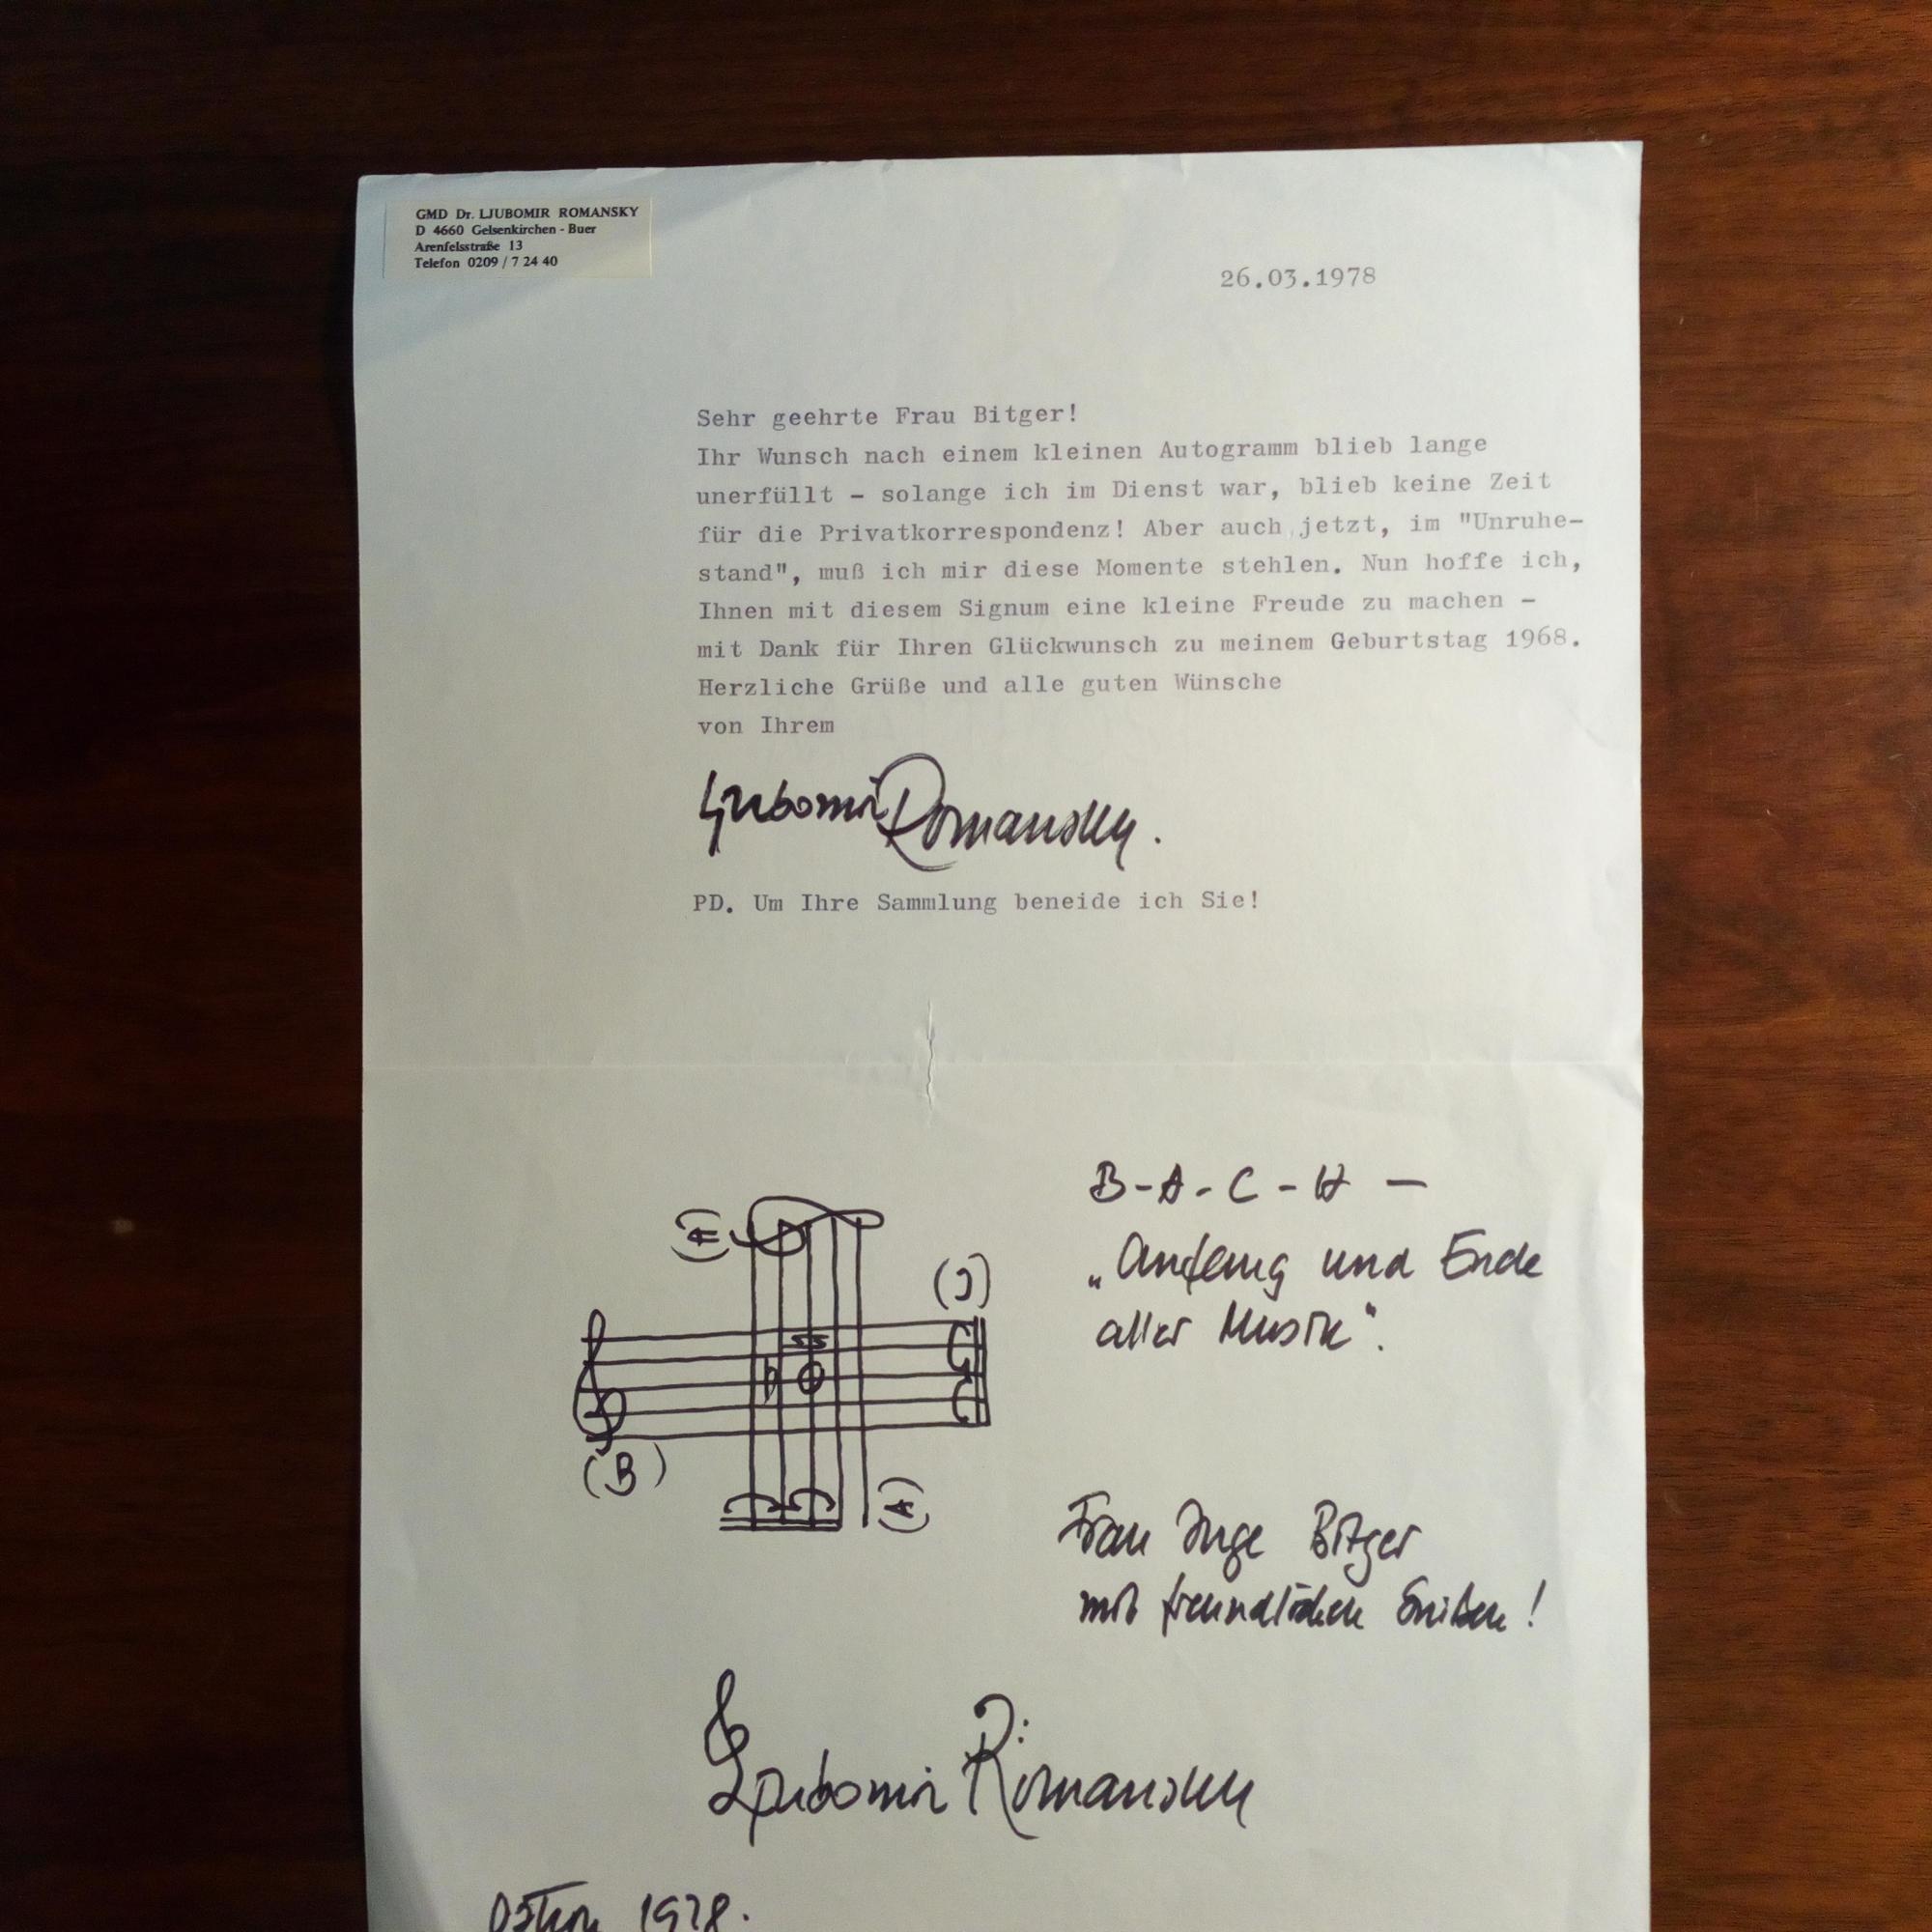 GMD Dr. LJUBOMIR ROMANSKY
D 4660 Gelsenkirchen - Buer
Arenfelsstraße 13
Telefon 0209 / 7 24 40
26.03.1978
Sehr geehrte Frau Bitger!
Ihr Wunsch nach einem kleinen Autogramm blieb lange
unerfüllt - solange ich im Dienst war, blieb keine Zeit
für die Privatkorrespondenz! Aber auch jetzt, im "Unruhe-
stand", muß ich mir diese Momente stehlen. Nun hoffe ich,
Ihnen mit diesem Signum eine kleine Freude zu machen -
mit Dank für Ihren Glückwunsch zu meinem Geburtstag 1968.
Herzliche Grüße und alle guten Wünsche
von Ihrem
Ljubomir Romansky.
PD. Um Ihre Sammlung beneide ich Sie!
B-A-C-H —
„Anfang und Ende
aller Musik“.
(B)
(A)
Frau Inge Bitger
mit freundlichen Grüßen!
Ljubomir Romansky
Ostern 1978.